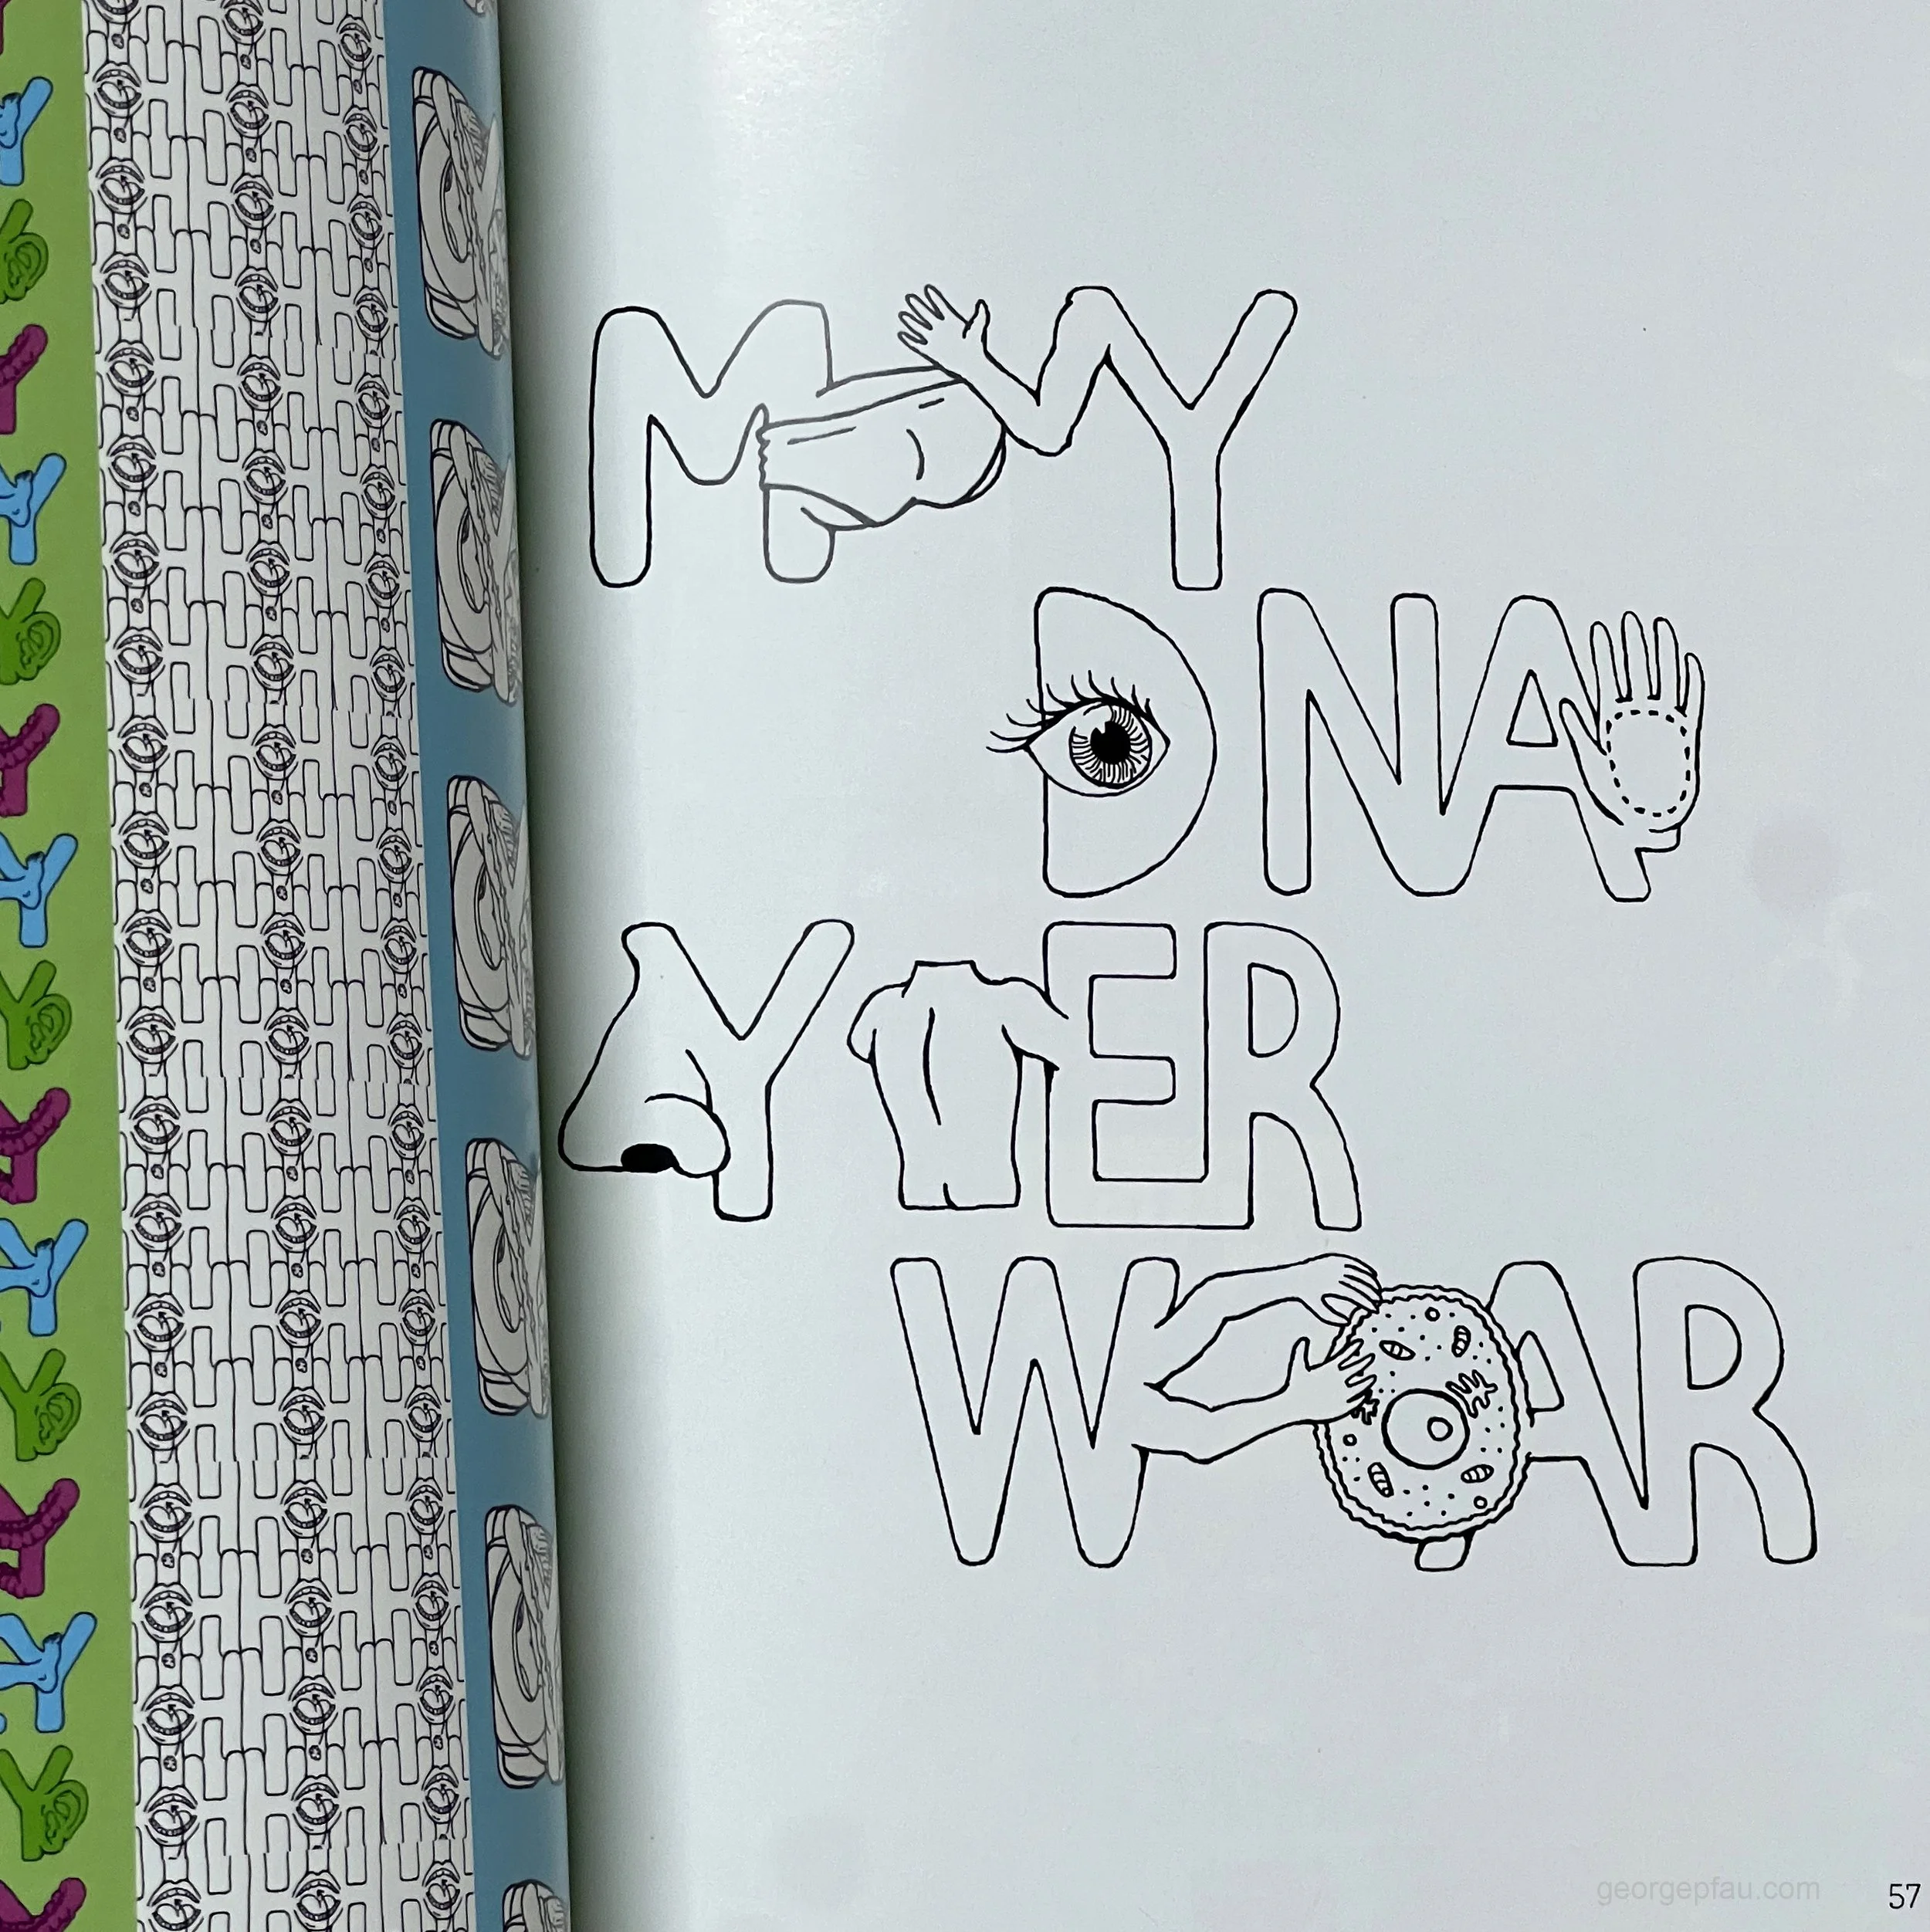 MY
DNA
YER
WAR
georgepfau.com
57